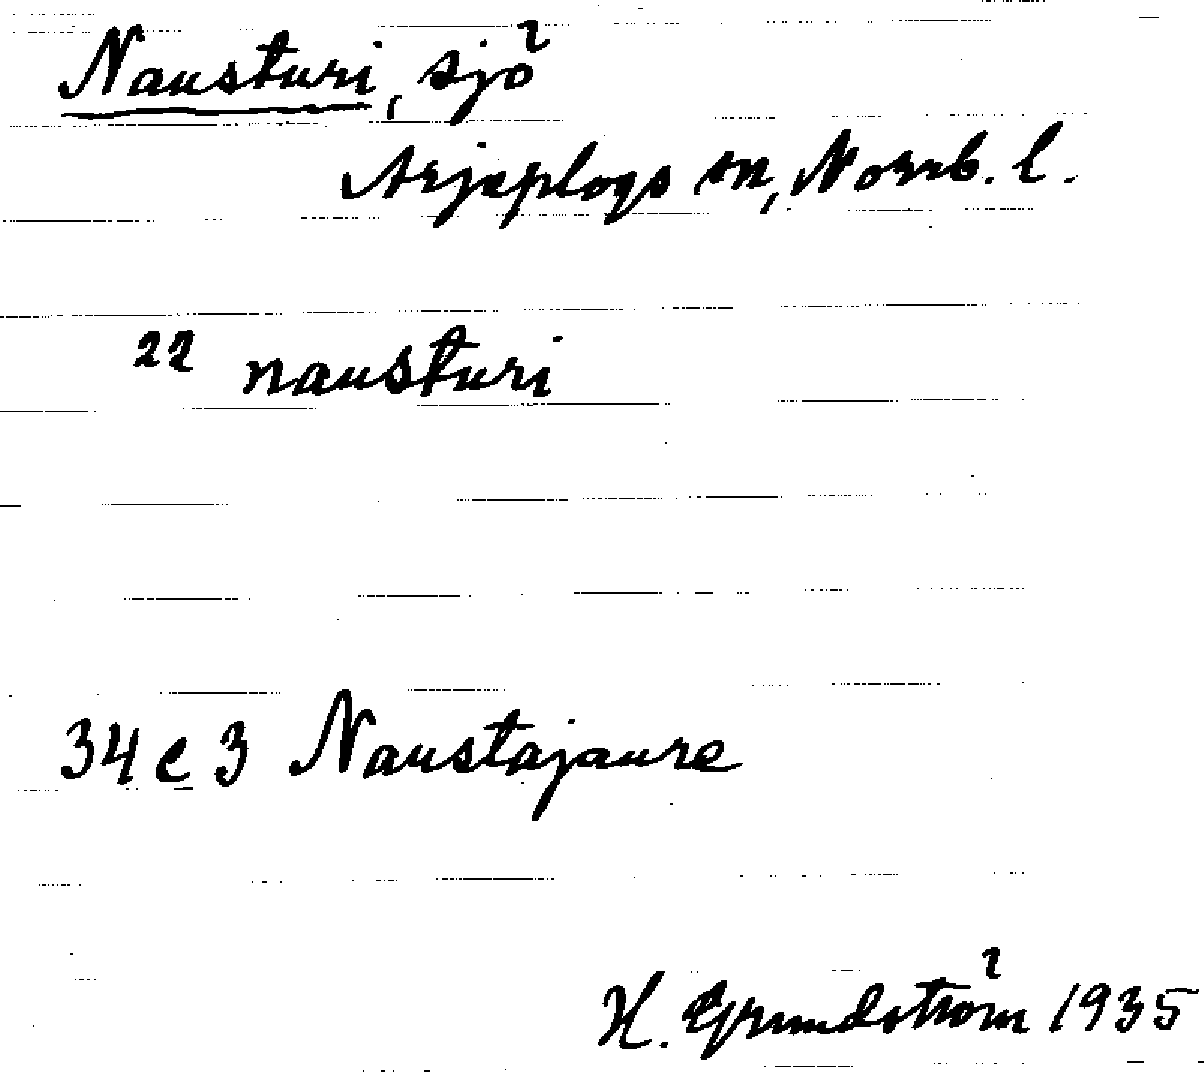 Nausturi, sjö
Arjeplogs sn, Norrb. l.
22 nausturi
34 c 3 Naustajaure
H. Grundström 1935